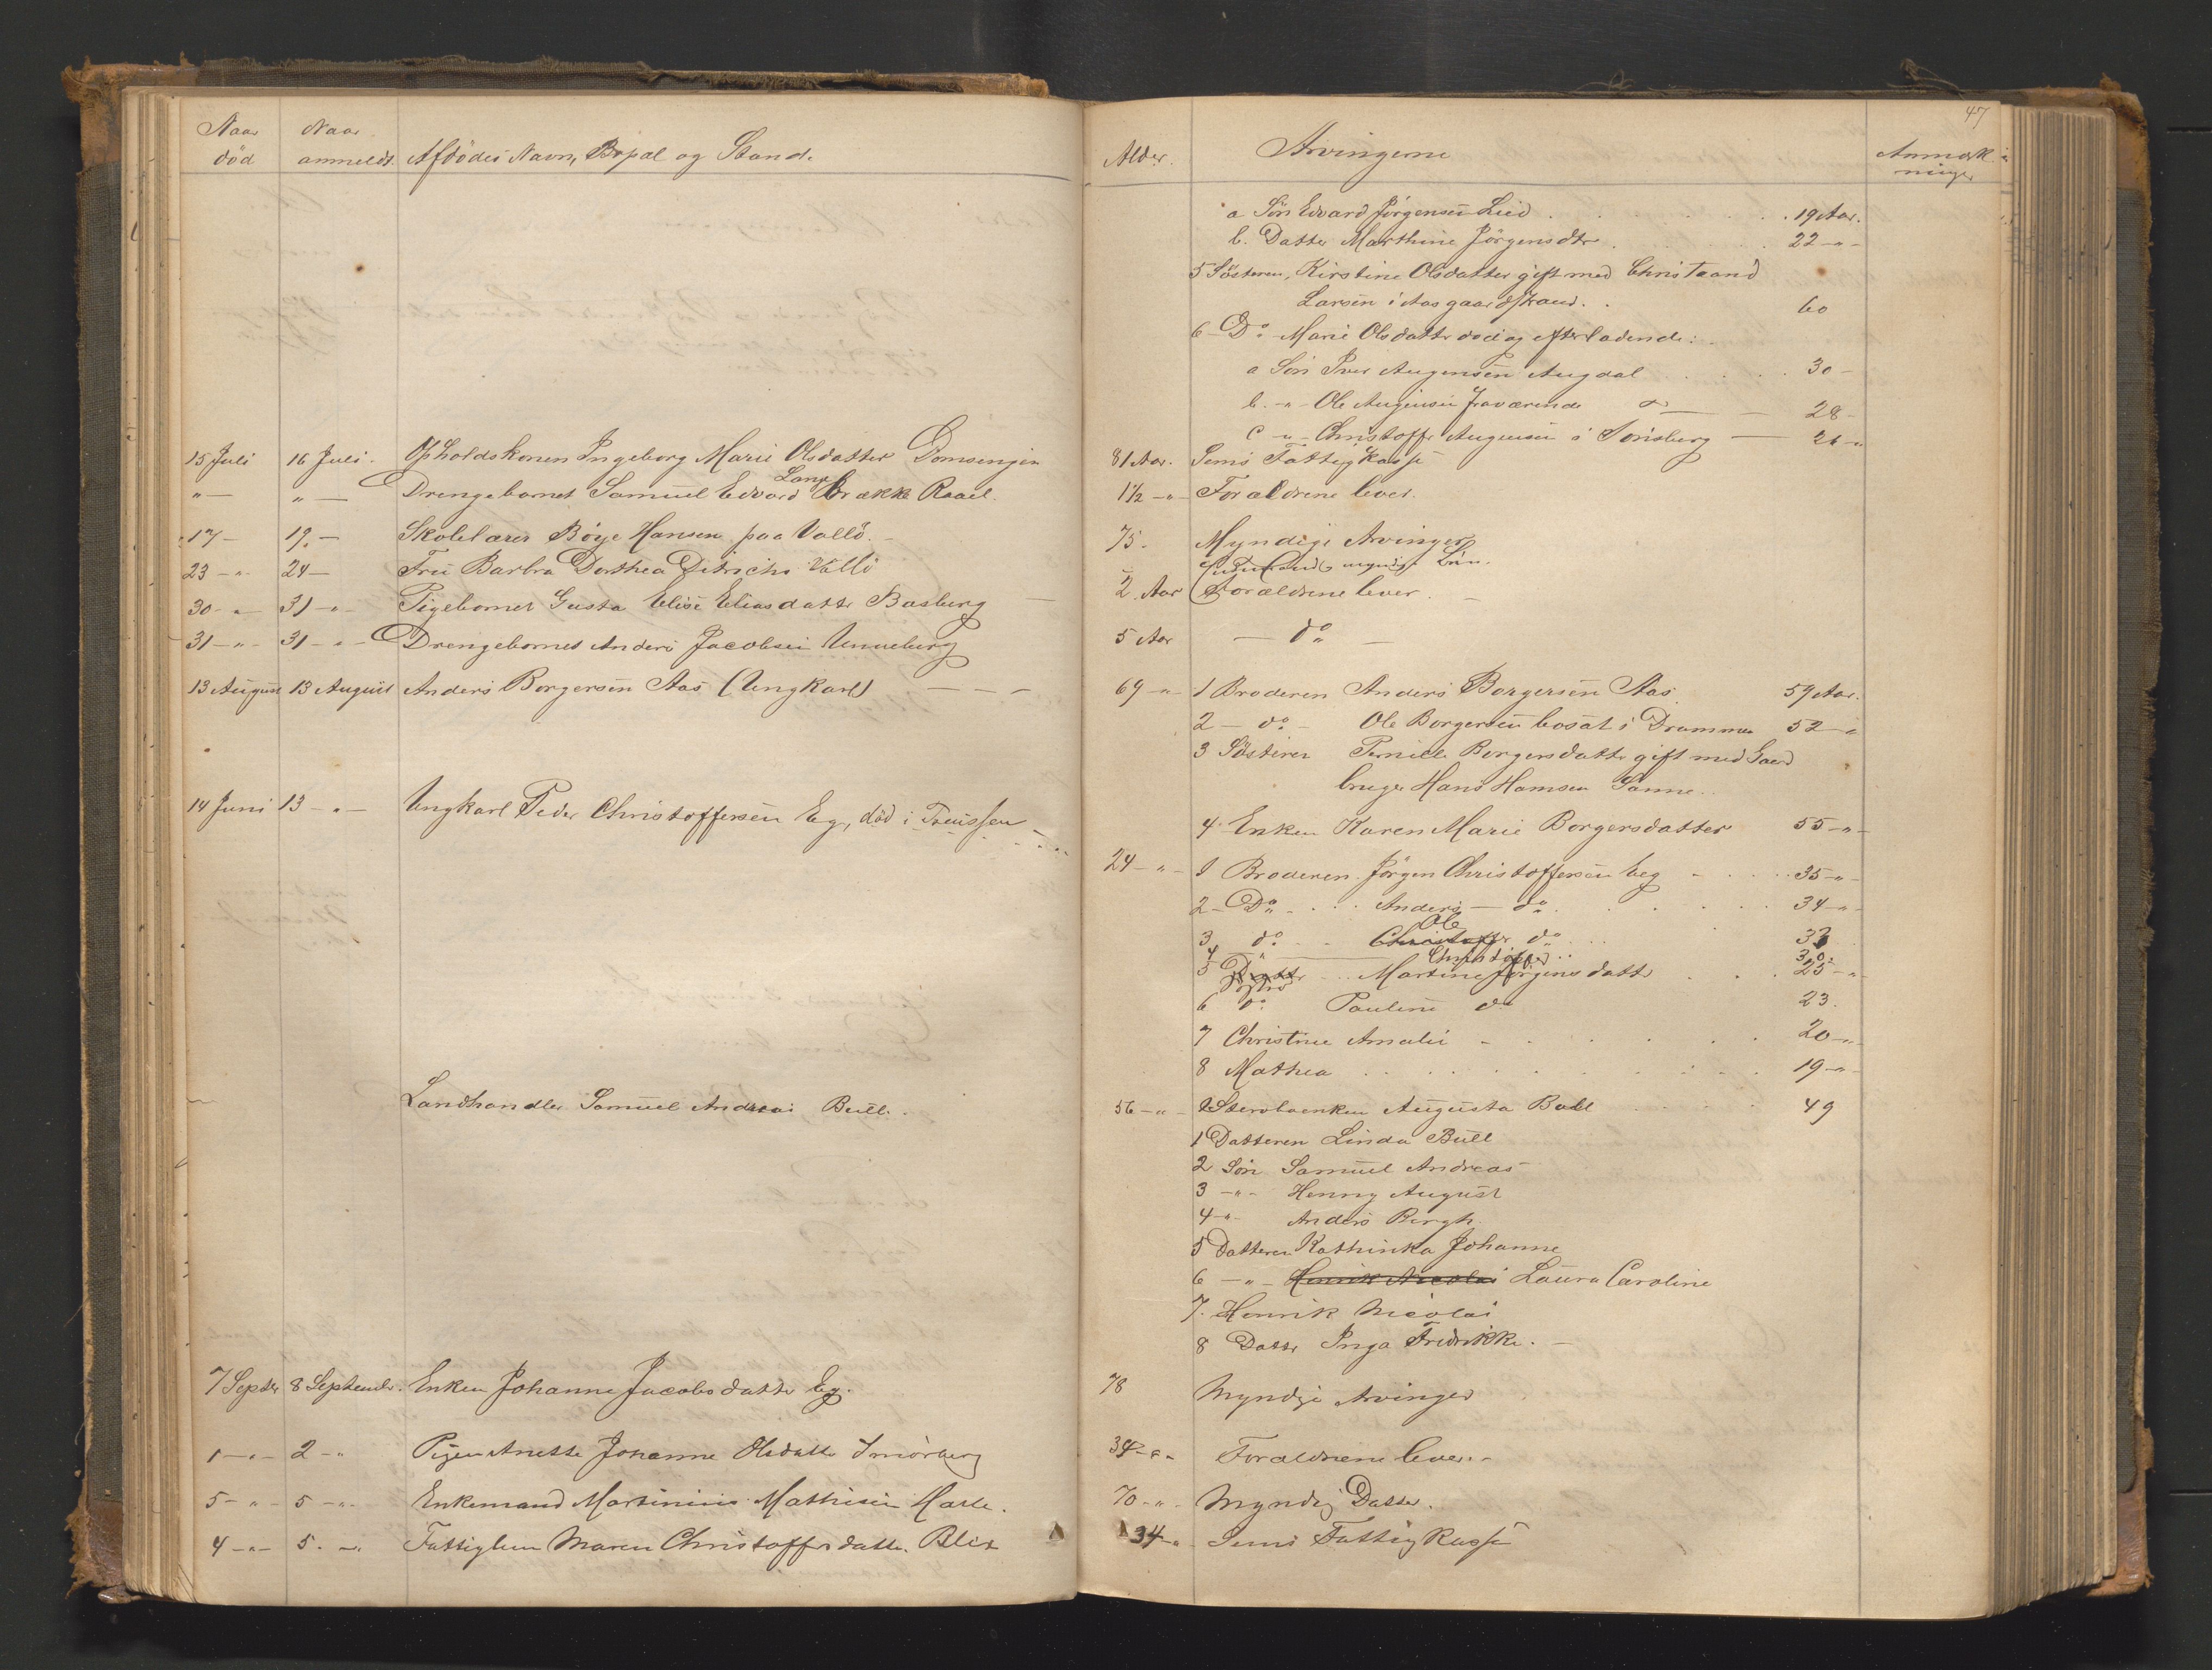 Naar død
Naar anmeldt.
Afdødes Navn, Bopæl og Stand.
15 Juli 16 Juli. Opholdskonen Ingeborg Marie Olsdatter
" — " — Drengebarnet Samuel Edvard Lange Brække Raael.
17 — 19. — Skolelærer Böye Hansen paa Vallö. —
23 — " — 24 — Fru Barbra Dorthea Ditrichs Vallö
30 — " — 31 — " — Pigebarnet Gusta Elise Eliasdatte Basberg
31 — " — 31 — " — Drengebarnet Anders Jacobsen Unneberg
13 August 13 August Anders Borgersen Aas (Ungkarl) — — —
14 Juni 13 — " — Ungkarl Peder Christoffersen Eg, död i
Landhandler Samuel Andreas Bull.
7 Septbr 8 September. Enken Johanne Jacobsdatte Eg.
1 — " — 2 — " Pigen Anette Johanne Olsdatte Smörberg
5 — " — 5 — " — Enkemand Martinius Mathisen Hasle.
4 — " — 5. — " Fattiglem Maren Christoffersdatte. Blix
47
Alder. Arvingerne Anmærkninger
a Sön Edvard Jörgensen Lied . . . 19 Aar.
b. Datter Marthine Jörgensdtr . . 22 — " —
5 Söstern, Kirstine Olsdatter gift med
Larsen i Aasgaardstrand. . 60
6 — Do. Marie Olsdatte död og efterladende:
a Sön Iver Augensen Augdal . . . 30 —
b. — " — Ole Augensen fraværende do — 28 —
c — " — Christoffer Augensen i Tönsberg — 26 — "
81 Aar. Sems Fattigkasse
1½ — " — Forældrene lever.
75. Myndige Arvinger
myndig Sön.
2. Aar Forældrene lever. —
5 Aar — do —
69 — " — 1 Broderen Anders Borgersen Aas 59 Aar.
2 — do — Ole Borgersen bosat i Drammen 52 — "
3 Söstern Pernille Borgersdatte gift med Gaard
bruger Hans Hansen Sanne.
4 Enken Karen Marie Borgersdatter 55 — " —
24 — " — 1 Broderen Jörgen Christoffersen Eeg — . . 35 — " —
2 — Do. . . Anders — do . . . 34 — " —
Ole
3 do. — Christoffer do . . 33
4 — " — Christoffer . . 30.
5 Datter Söster . . . Martine Jörgensdatte . . 25 — "
6 do. Pauline do 23.
7 Christine Amalie — . . . . 20 — " —
8 Mathea . . . . . 19 — " —
56 — " — Sterbboenken Augusta Bull . . . 49
1 Datteren Linda Bull
2 Sön Samuel Andreas
3 — " — Henny August
4 — " Anders Bergh
5 Datteren Kathinka Johanne
6 — " — Henrik Nicolai Laura Caroline
7. Henrik Nicolai
8 Datte Inga Fredrikke. —
78 Myndige Arvinger
34 — " — Forældrene lever. —
70 — " — Myndig Datter.
34 — " — Sems Fattigkasse